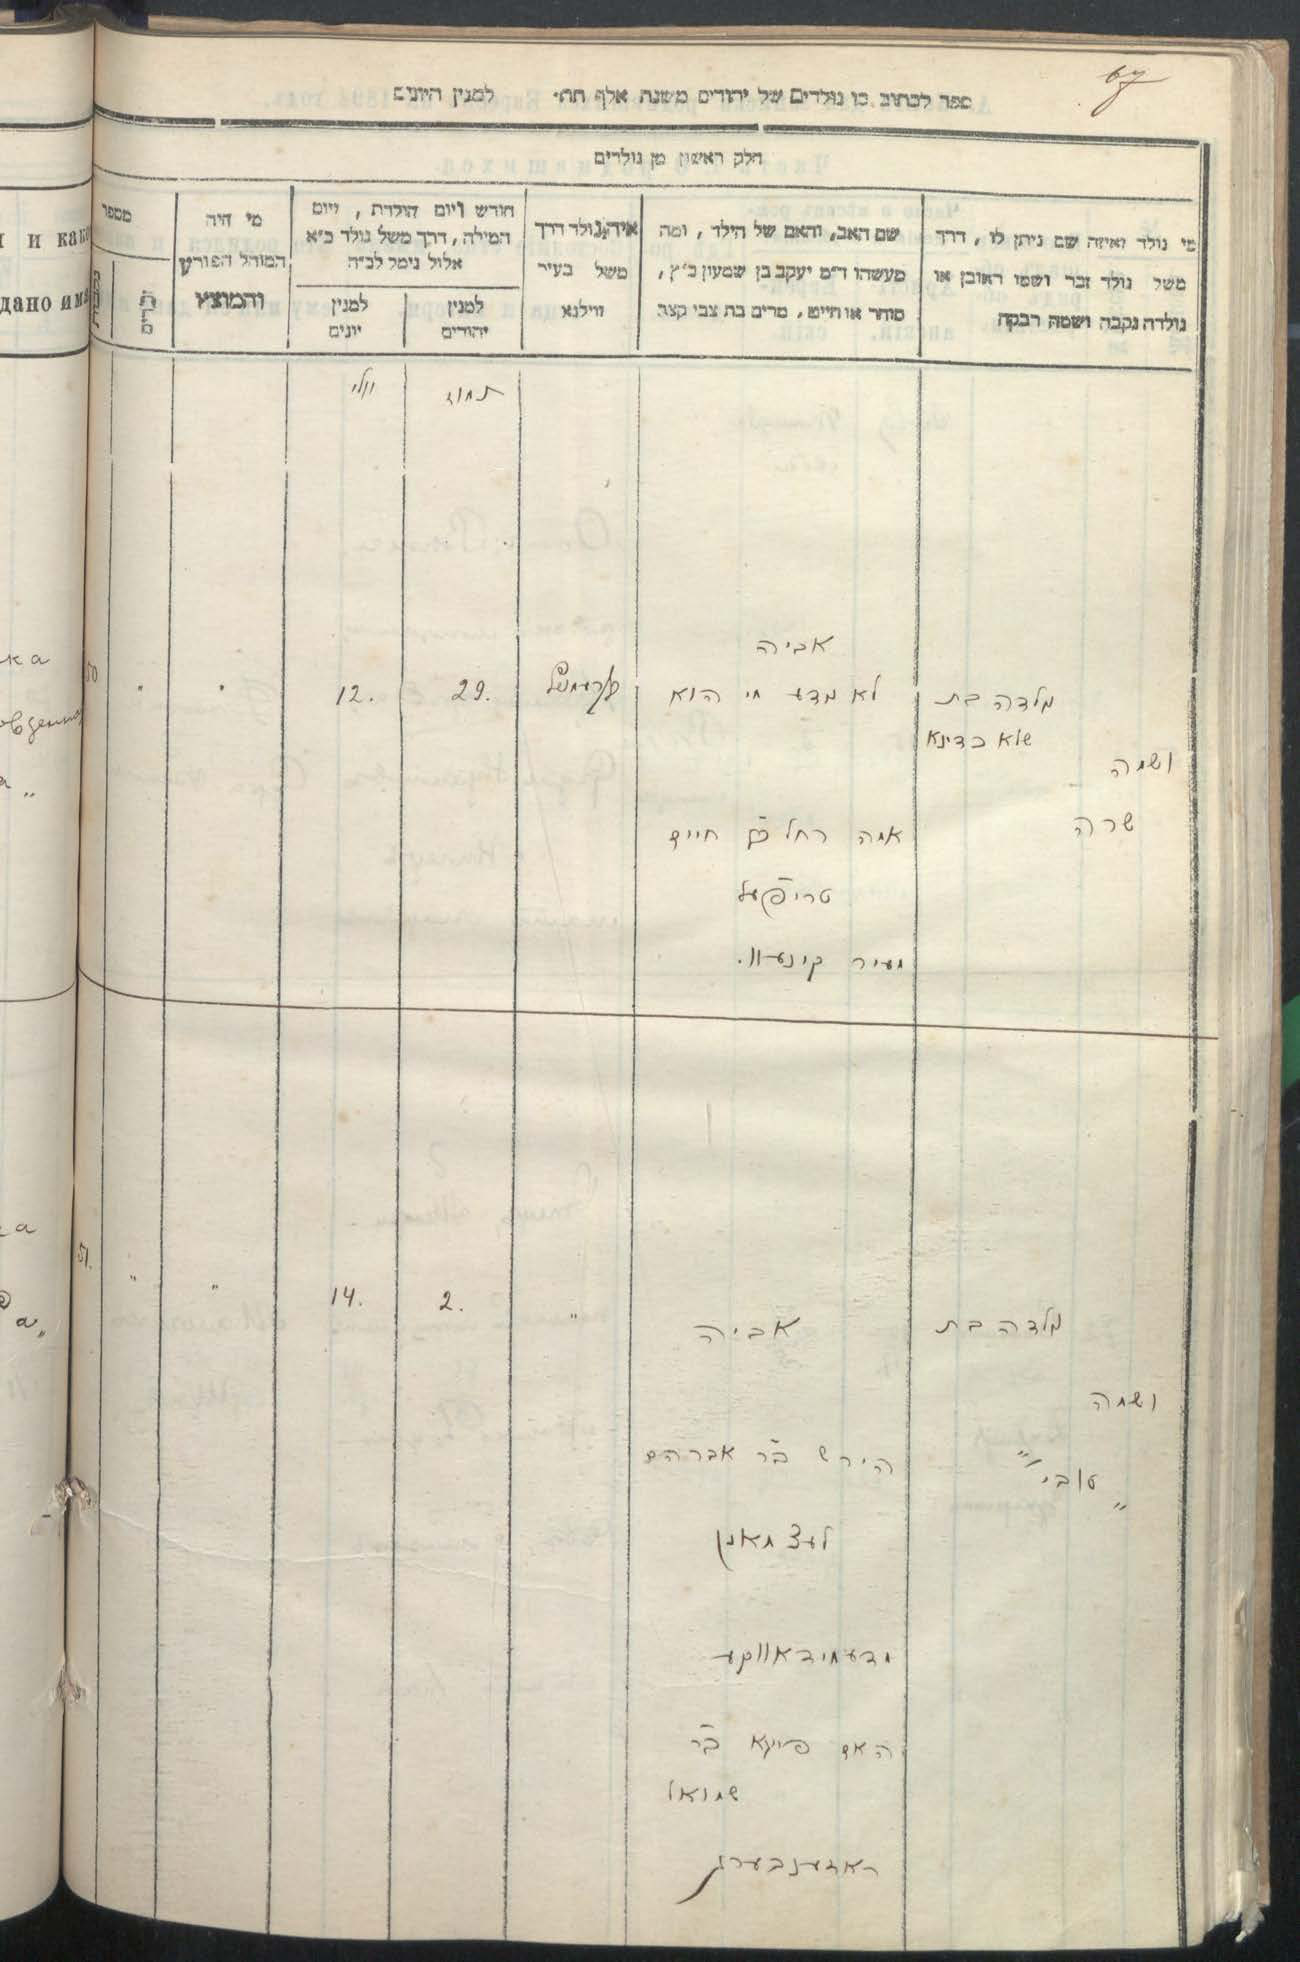 67
ספר לכתוב בו נולדים של יהודים משנת אלף תת״ למנין היונים
חלק ראשון מן נולדים
מי נולד ואיזה שם ניתן לו, דרך
משל נולד זכר ושמו ראובן או
נולדה נקבה ושמה רבקה
שם האב, והאם של הילד, ומה
מעשהו ד״מ יעקב בן שמעון כ״ץ,
סוחר או חייט, מרים בת צבי קצב
איה נולד דרך
משל בעיר
ווילנא
חודש ויום הולדת, ויום
המילה, דרך משל נולד כ״א
אלול נימל לכ״ה
למנין
יהודים
למנין
יונים
מי היה
המוהל הפורע
והמוצץ
מספר
זכרים
נקבות
תמוז
יולי
נולדה בת
שלא כדינא
ושמה
שרה
אביה
לא נודע מי הוא
אמה רחל בת חיים
מעיר
29.
12.
"
"
50
נולדה בת
ושמה
"טובי"
אביה
הירש בר אברהם
לעצמאנן
האם פייגא בר
שמואל
ראזענבערג
"
2.
14.
"
"
51.
и как
дано има
ка
а "
а
а"